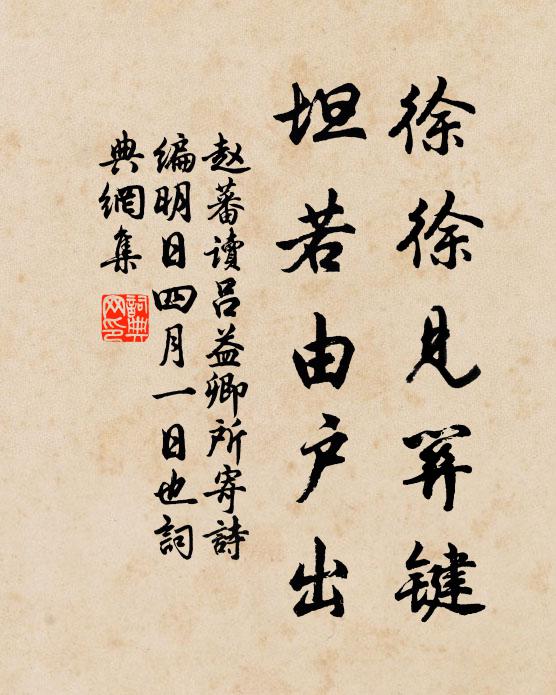 徐徐见笄键
坦若由户出
赵蕃读吕益卿所寄詩
编明日四月一日也詞
典網集
詞典网印